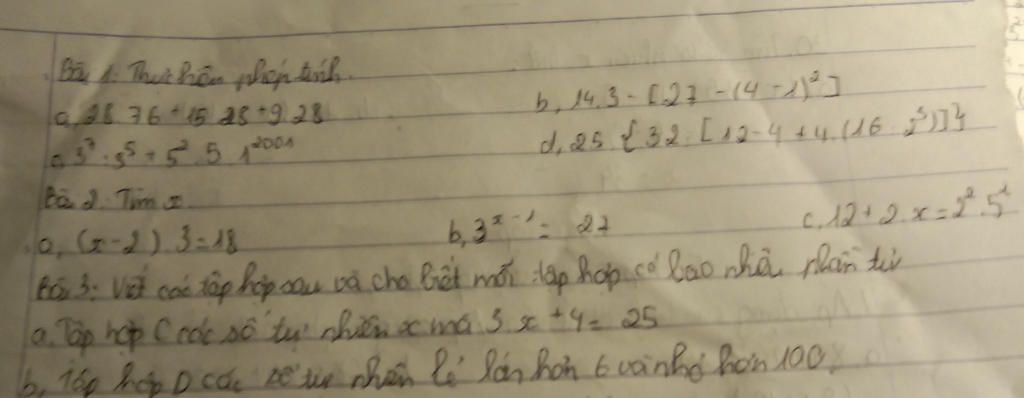 Bài 1: Thực hiện phép tính.
a, 28.76 + 15.28 + 9.28
b, 14.3 - [27 - (4 - 1)²]
3⁷ : 3⁵ + 5².5 . 1²⁰⁰¹
d, 25. {32: [12 - 4 + 4.(16: 2³)]}
Bài 2: Tìm x
a, (x - 2).3 = 18
b, 3ˣ⁻¹ = 27
c, 12 + 2.x = 2².5¹
Bài 3: Viết các tập hợp sau và cho biết mỗi tập hợp có bao nhiêu phần tử
a. Tập hợp C các số tự nhiên x mà 3.x + 4 = 25
b, Tập hợp D các số tự nhiên lẻ lớn hơn 6 và nhỏ hơn 100